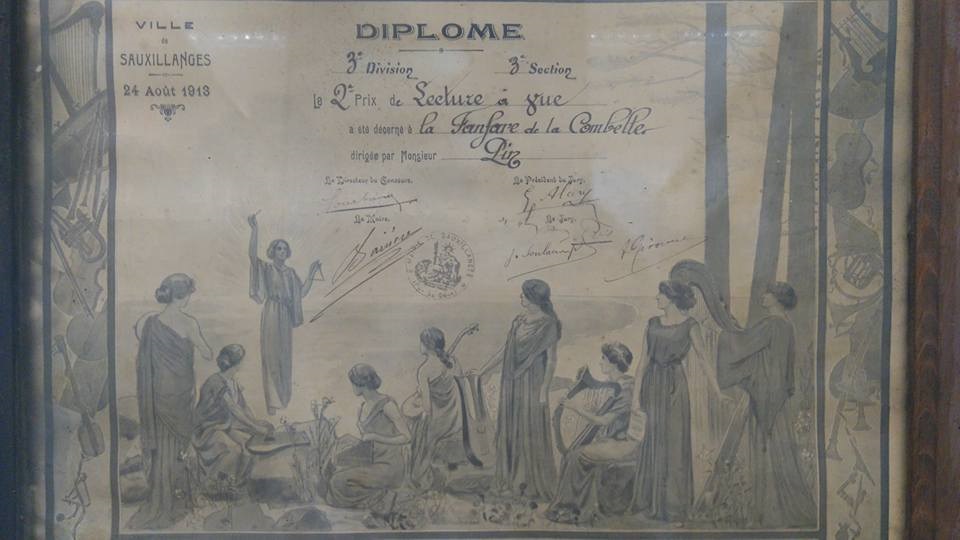 VILLE
de
SAUXILLANGES
24 Août 1913
DIPLOME
3e Division 3e Section
Le 2e Prix de Lecture à vue
a été décerné à la Fanfare de la Combelle
dirigée par Monsieur Pin
Le Directeur du Concours, Le Président du Jury,
Le Maire, Le Jury,
MAIRIE DE SAUXILLANGES